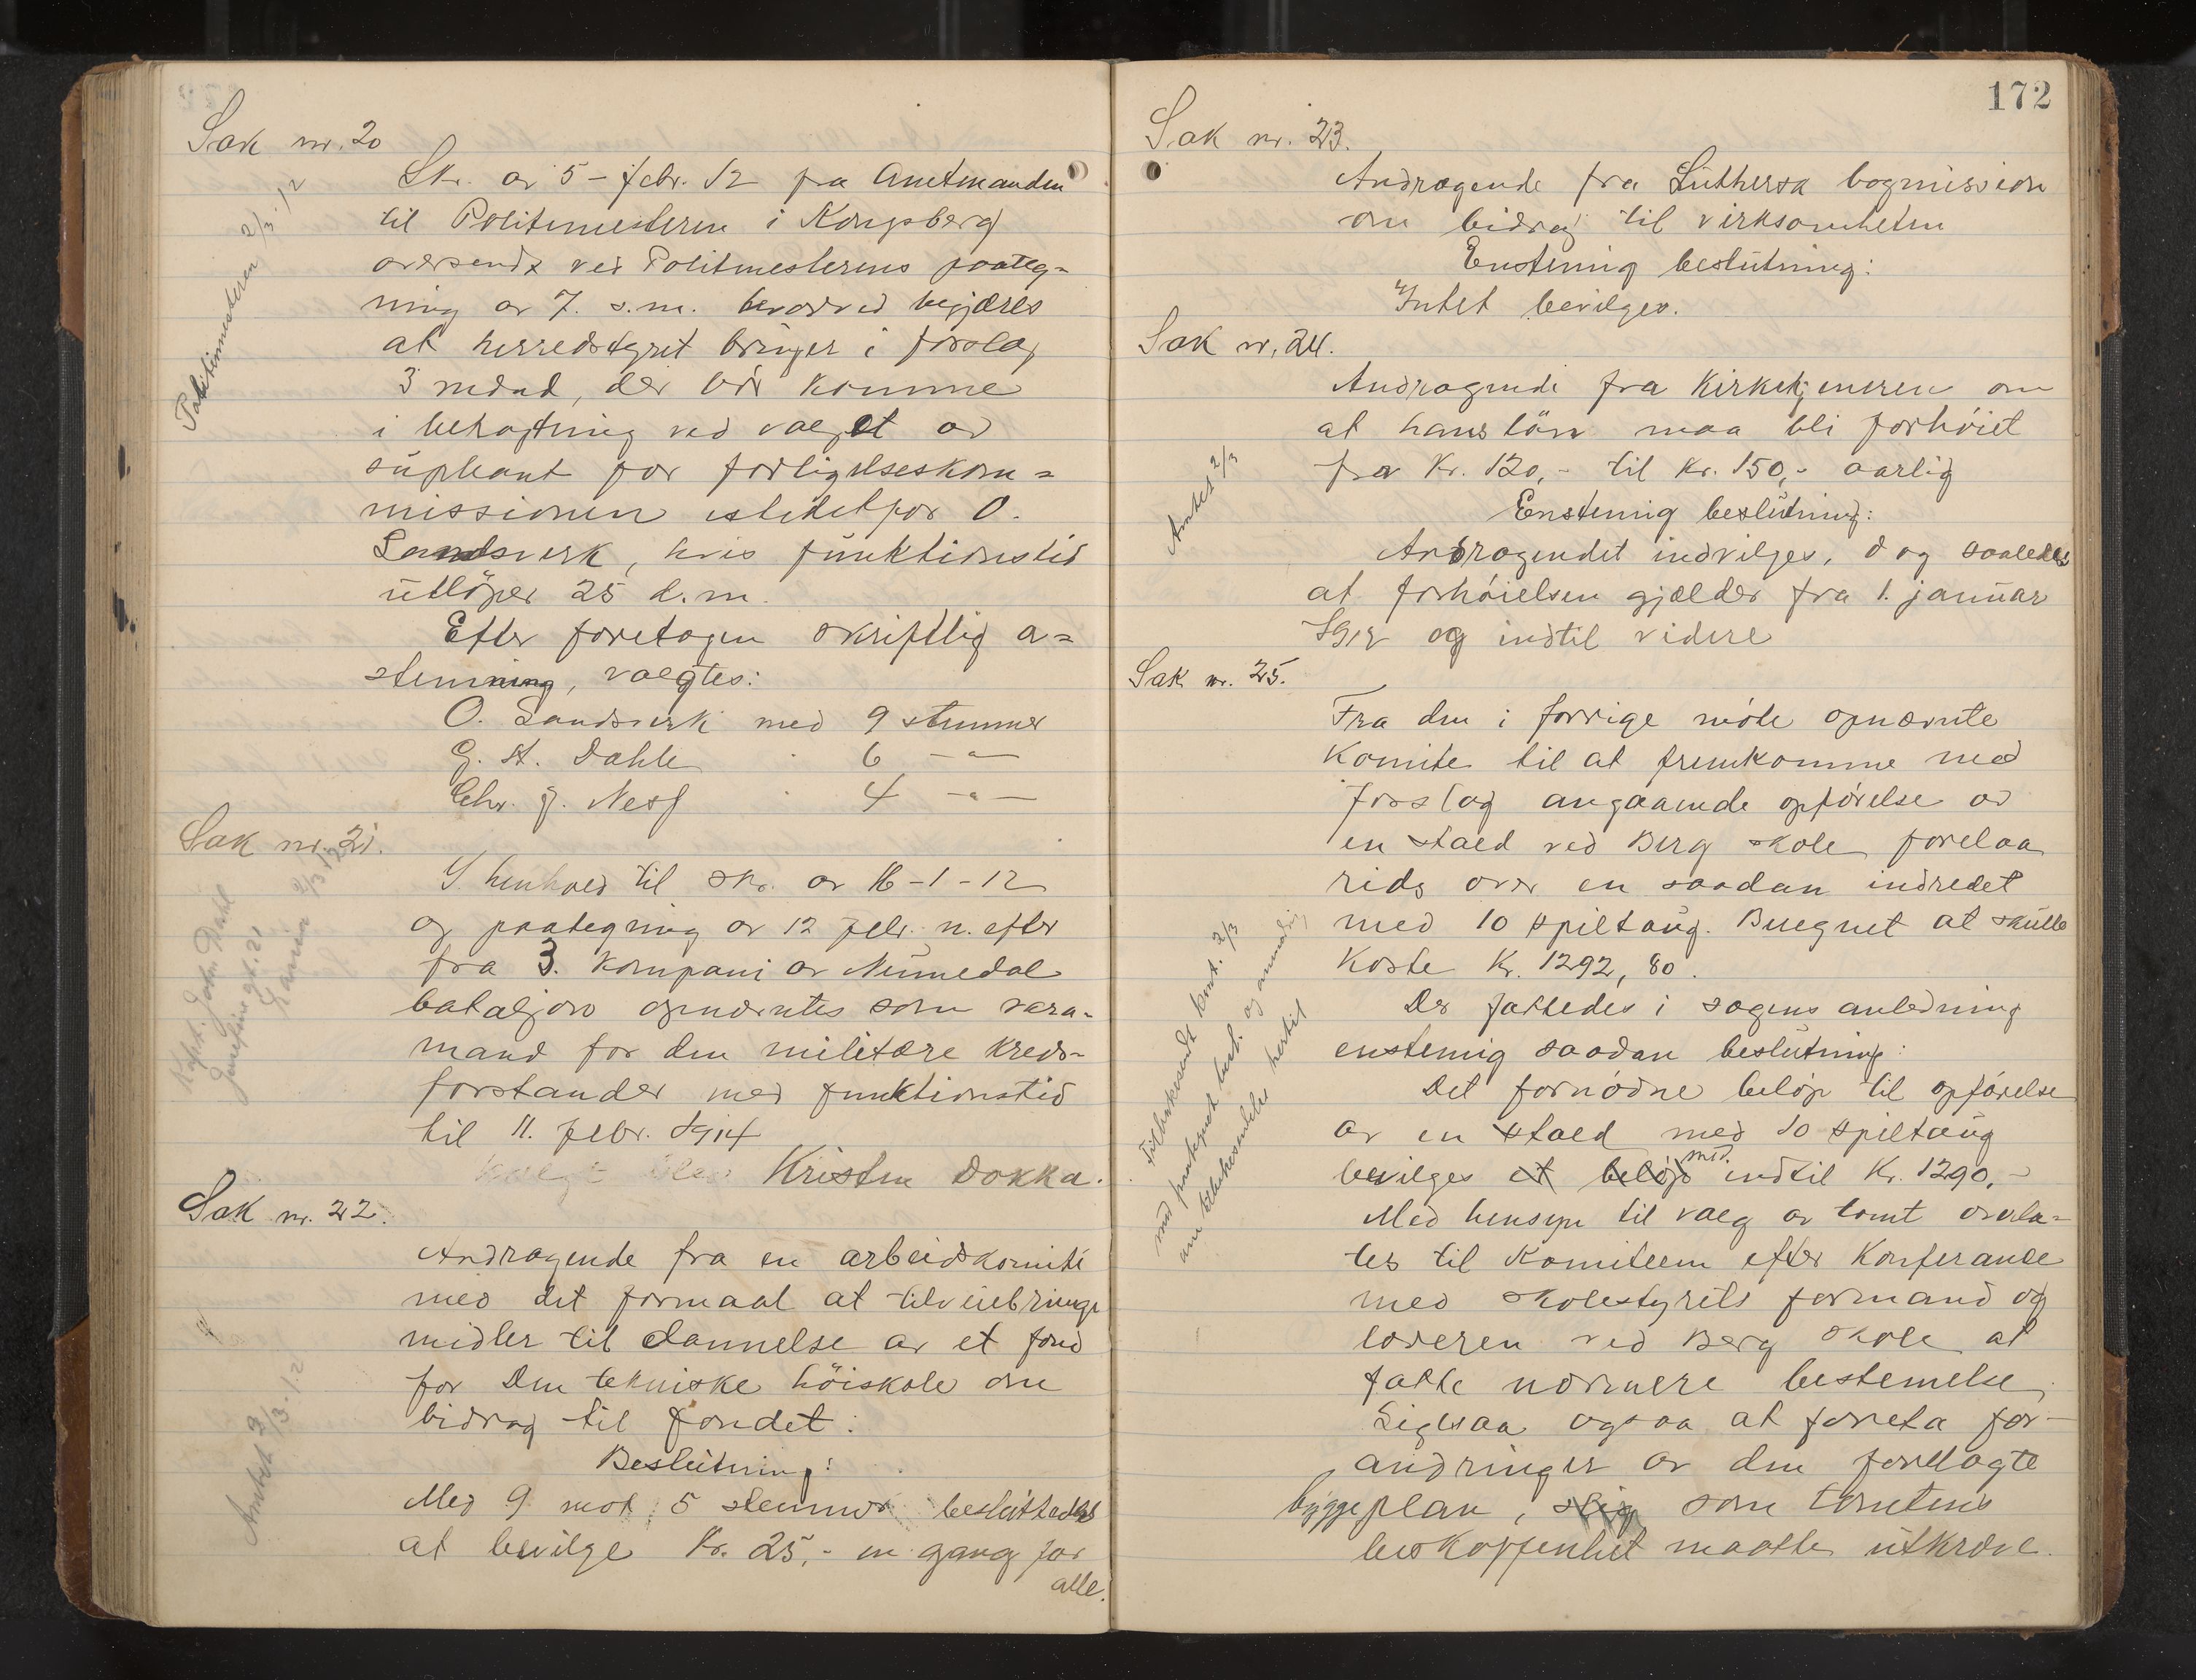 Sak nr. 20
Skr. av 5 - febr. 12 fra Amtmanden
til Politimesteren i Kongsberg
oversendt ved Politmesterens paateg-
ning av 7. s.m. hvorved begjæres
at herredstyret bringer i forslag
3 mænd, der bör komme
i betragtning ved valget av
supleant for forligelseskom-
missionen istedetfor O.
Landsverk, hvis funktionstid
utlöper 25 d.m.
Efter foretagen skriftlig a-
stemning, valgtes:
O. Landsverk med 9 stemmer
G. A. Dahle 6 - " -
Chr. J. Næss 4 - " -
Politimesteren 2/3-12
Sak nr. 21.
I henhold til skr. av 16-1-12
og paategning av 12 febr. n. efter
fra 3. kompani av Numedal
bataljon opnævntes som vara-
mand for den militære kreds-
forstander med funktionstid
til 11. febr. 1914
valgt blev Kristen Dokka.
Kapt. Joh. Dahl
2/3 12
Sak nr. 22.
Andragende fra en arbeidskomité
med det formaal at tilveiebringe
midler til dannelse av et fond
for Den tekniske höiskole om
bidrag til fondet.
Beslutning:
Med 9 mot 5 stemmer besluttedes
at bevilge Kr. 25,- en gang for
alle.
Amtet 2/3-12
172
Sak nr. 23.
Andragende fra Luthersk bogmission
om bidrag til virksomheten
Enstemig beslutning:
Intet bevilges.
Sak nr. 24.
Andragende fra Kirketjeneren om
at hans lön maa bli forhöiet
fra Kr. 120,- til Kr. 150,- aarlig
Enstemig beslutning:
Andragendet indvilges, dog saaledes
at forhöielsen gjælder fra 1. januar
1912 og indtil videre
Amtet 2/3
Sak nr. 25.
Fra den i forrige möte opnævnte
Komite til at fremkomme med
forslag angaaende opförelse av
en stald ved Berg skole forelaa
rids over en saadan indredet
med 10 spiltaug. Beregnet at skulle
Koste Kr. 1292,80.
Der fattedes i sagens anledning
enstemig saadan beslutning:
Det fornödne belöp til opförelse
av en stald med 10 spiltaug
bevilges et belöp med indtil Kr. 1290,-
Med hensyn til valg av tomt overla-
tes til Komiteen efter Konferanse
med skolestyrets formand og
læreren ved Berg skole at
fatte nærmere bestemelse.
Ligesaa ogsaa at foreta for-
andringer av den forelagte
byggeplan, slig som tomtens
beskaffenhet maatte utkræve.
Tilbakesendt kmt. 2/3
med paategnet besl. og anmodn.
om tilbakesendelse hertil